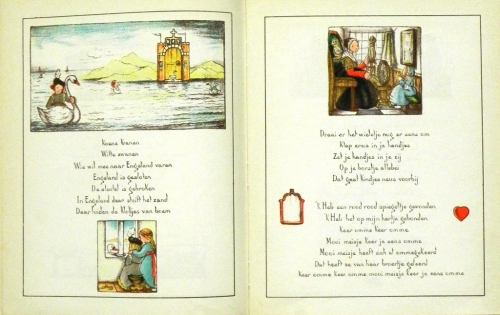 Kroene kranen
Witte zwanen
Wie wil mee naar Engeland varen
Engeland is gesloten
De sleutel is gebroken
In Engeland daar stuift het zand
Daar luiden de klokjes van
Draai er het wieltje nog er eens om
Klap eens in je handjes
Zet je handjes in je zij
Op je borstje allebei
Dat gaat kindjes neus voorbij
'k Heb een rood rood spiegeltje gevonden
'k Heb het op mijn hartje gebonden
Keer omme keer omme
Mooi meisje keer je eens omme
Mooi meisje heeft zich al ommegekeerd
Dat heeft ze van haar broertje geleerd
Keer omme keer omme mooi meisje keer je eens omme